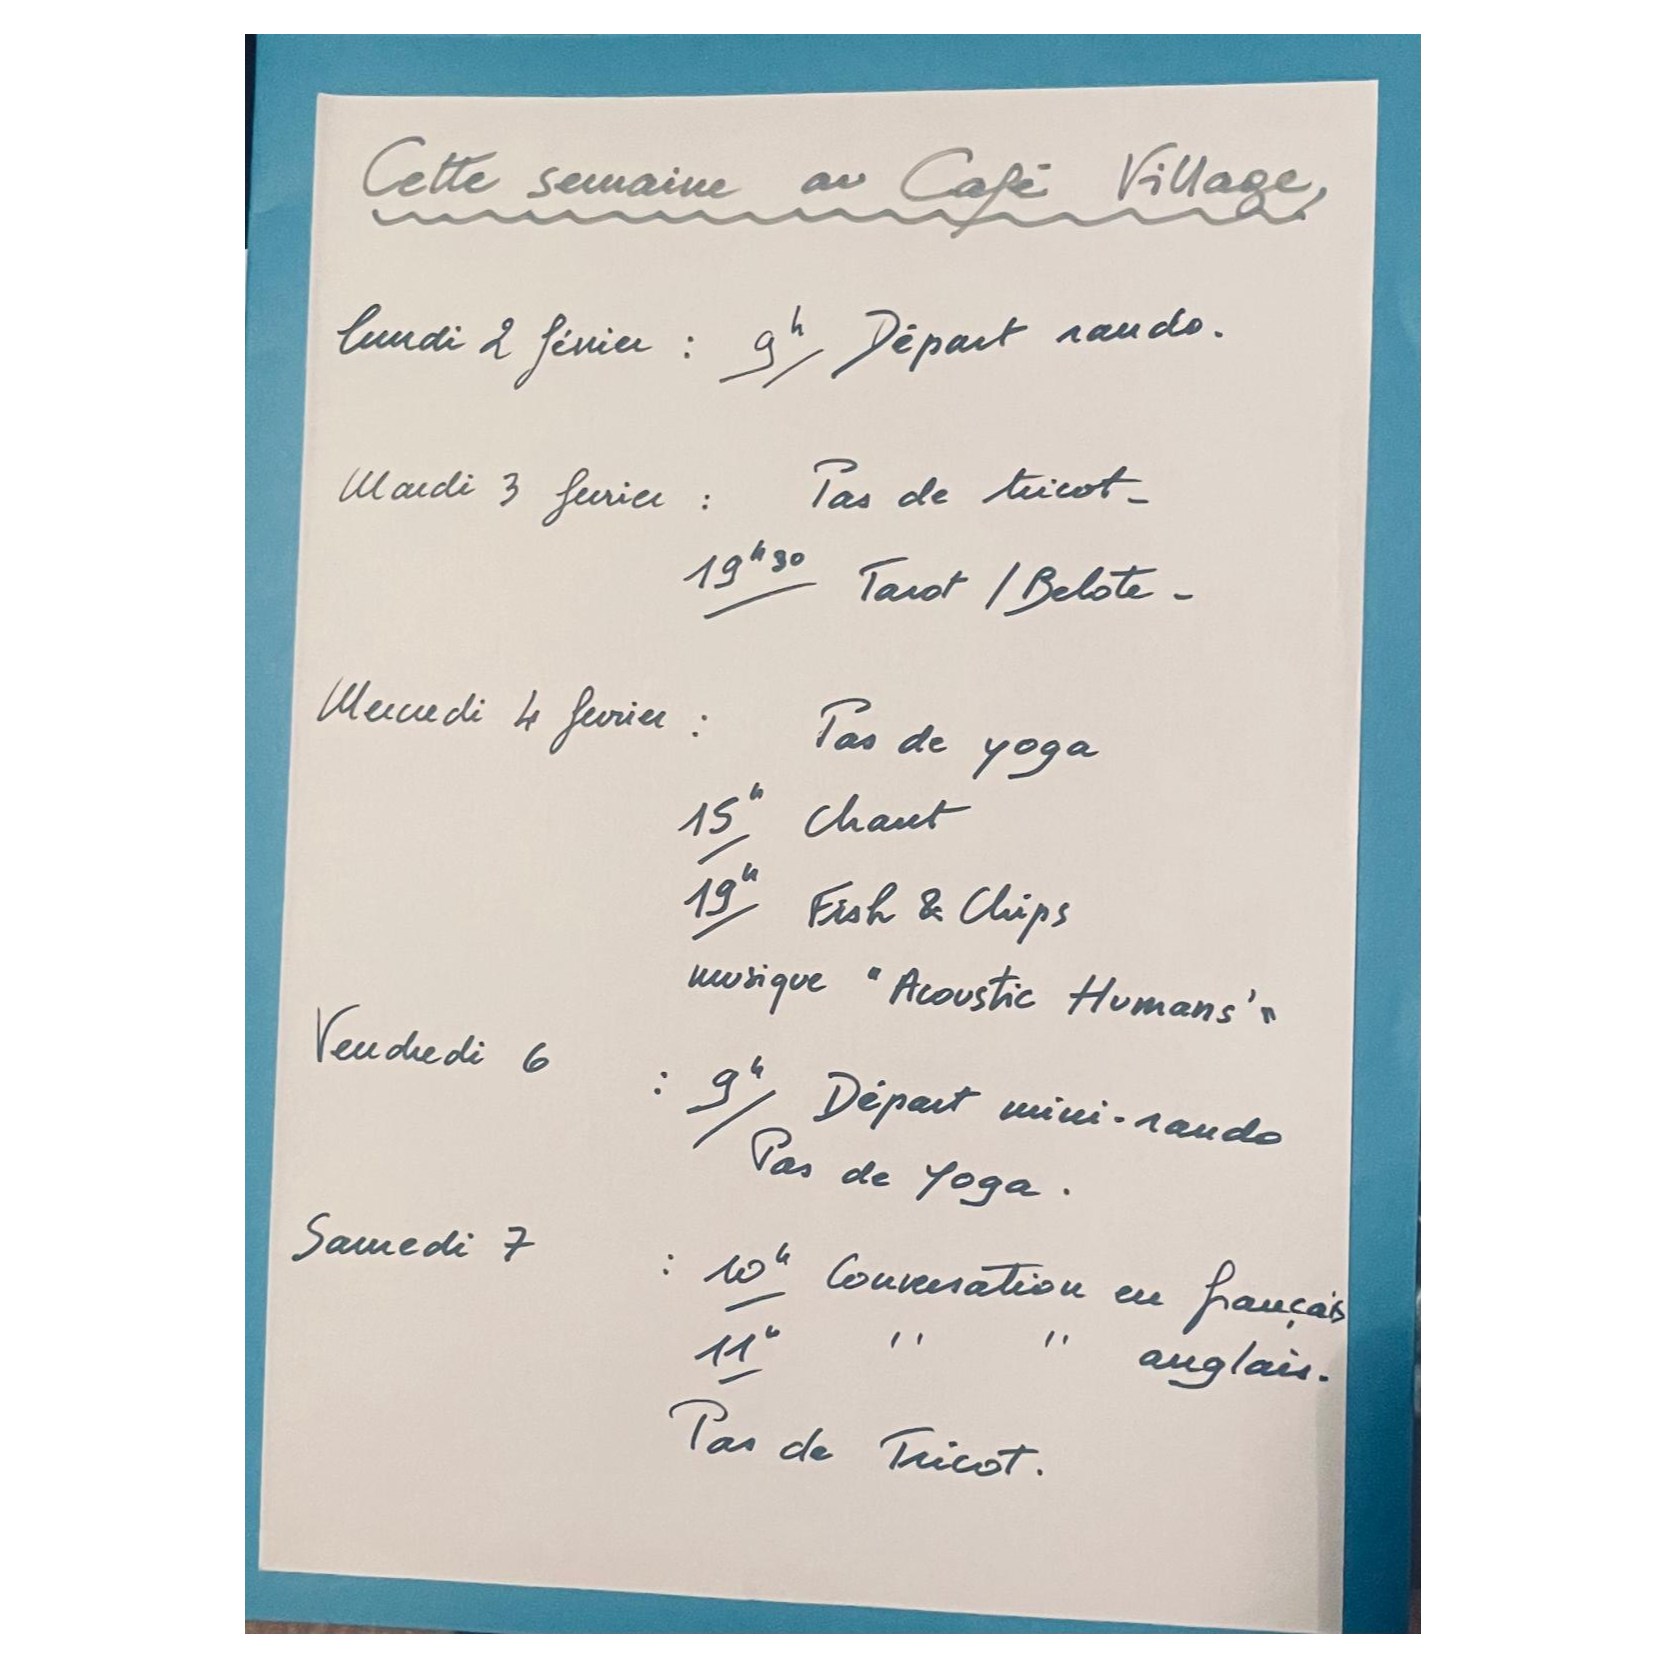 Cette semaine au Café Village,
lundi 2 février : 9h Départ rando.
Mardi 3 fevrier : Pas de tricot -
19h30 Tarot / Belote -
Mercredi 4 fevrier : Pas de yoga
15h Chant
19h Fish & Chips
musique "Acoustic Humans'"
Vendredi 6 : 9h Départ mini-rando
Pas de Yoga.
Samedi 7 : 10h Conversation en français
11h " " anglais.
Pas de Tricot.